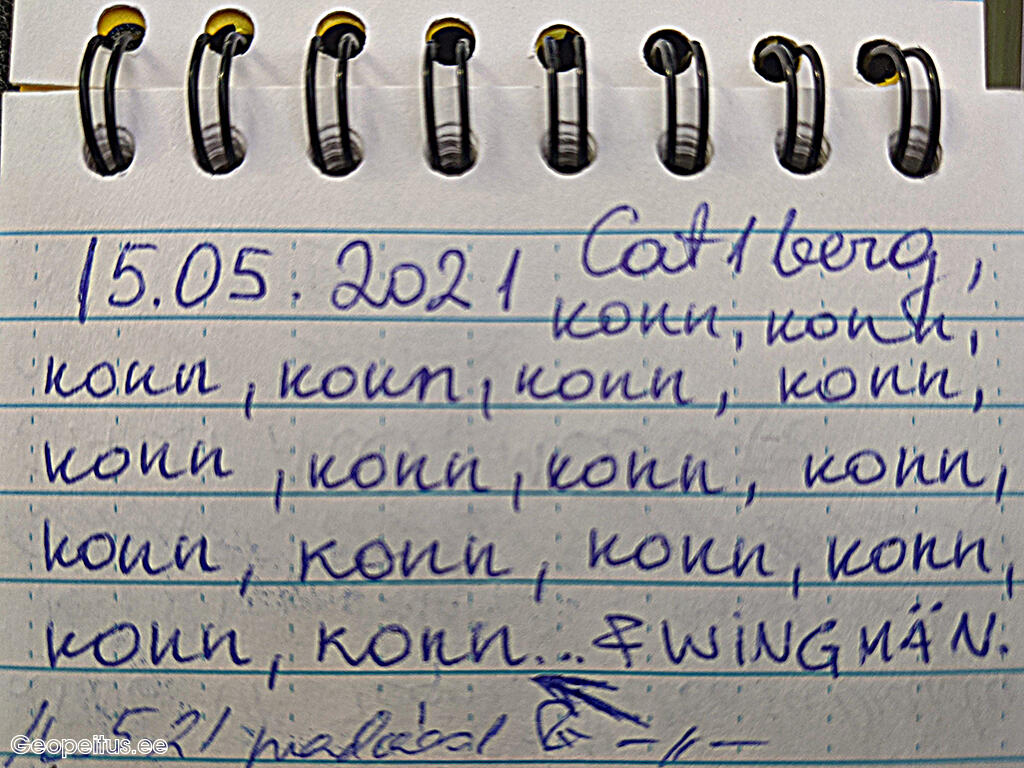 15.05.2021 Cat1berg,
konn, konn,
konn, konn, konn, konn,
konn, konn, konn, konn,
konn, konn, konn, konn,
konn, konn... & WINGMÄN.
5 21
Geopeitus.ee